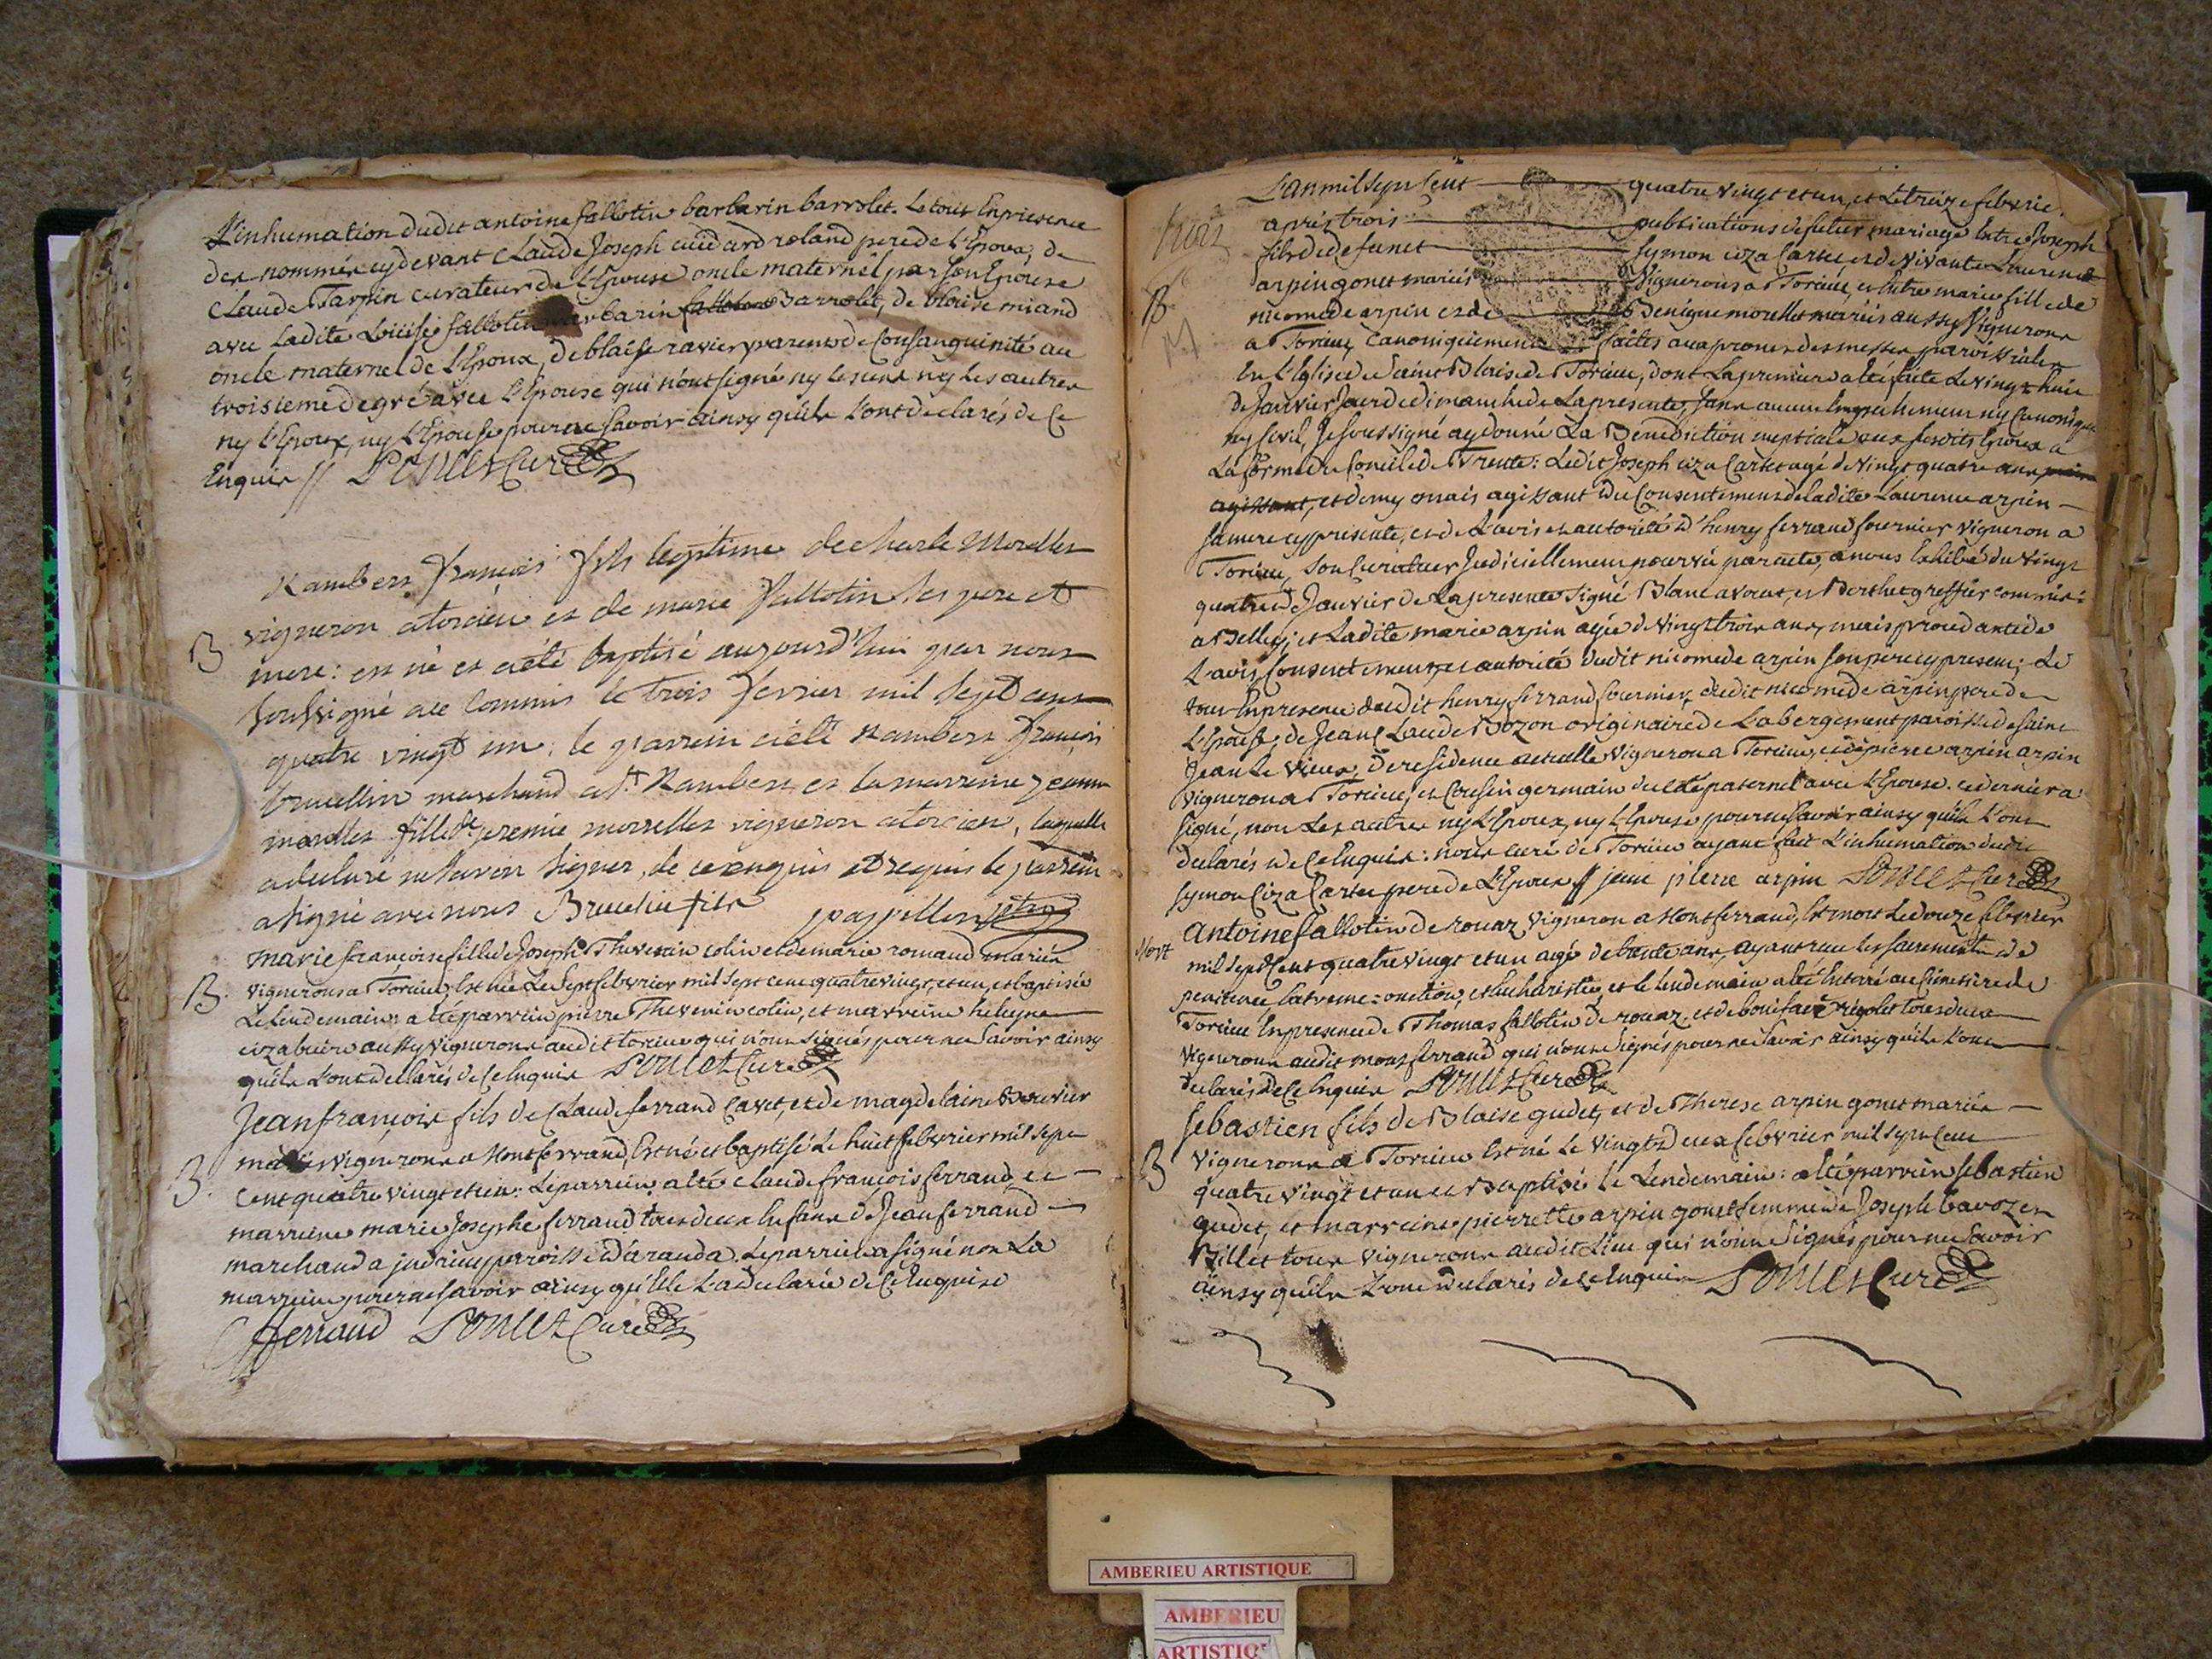 L'inhumation dudit antoine fallotin barbarin barrolet. Le tout En presence
des nommés cy devant Claude Joseph cuidard roland pere de L'Epoux, de
Claude Tarpin curateur de L'Epouse oncle maternel par son Epouse
avec Ladite Loüise fallotin barbarin barrolet, de blaise miand
oncle maternel de L'Epoux, de blaise ravier parens de Consanguinité au
troisieme degré avec L'Epouse qui n'ont signé ny les uns ny les autres
ny L'Epoux, ny L'Epouse pour ne savoir ainsy qu'ils L'ont declarés de Ce
Enquis // Curé
Rambert françois fils legitime de charle Morellet
B vigneron a torcieu et de marie fallotin ses pere et
mere : est né et a été baptisé aujourd'hui par nous
soussigné a ce Commis le trois fevrier mil sept cent
quatre vingt un, le parrein a été Rambert françois
bruellin marchand a St Rambert et la marreine jeanne
morellet fille de jeremie morellet vigneron a torcieu, laquelle
a declaré ne savoir signer, de ce enquis et requis le parrein
a signé avec nous Bruellin fils
marie françoise fille de Joseph Thevenin colin et de marie romand mariés
B. vignerons a Torcieu, Est née Le sept febvrier mil sept cent quatre vingt, et un, et baptisée
Le Lendemain : a été parrein pierre Thevenin colin, et marreine
aussy vignerons audit torcieu qui n'ont signés pour ne savoir ainsy
qu'ils L'ont declarés de Ce Enquis Curé
Jean françois fils de Claude ferrand Cavet, et de magdelaine
B. mariés vignerons a Montferrand, Est né et baptisé Le huit febvrier mil sept
Cent quatre vingt et un. Le parrein a été Claude françois ferrand, et
marreine marie Josephe ferrand tous deux Enfans de Jean ferrand
marchand a judrieu paroisse d'aranda. Le parrein a signé non La
marreine pour ne savoir ainsy qu'Elle L'a declarée de Ce Enquise
ferrand Curé
L'an mil sept Cent quatre vingt et un, et Le treize febvrie
après trois publications de futur mariage Entre Joseph
fils de defunct Symon ciza Cartet et de vivante Laurence
arpin gonet mariés vignerons a Torcieu, et Entre marie fille de
B nicomede arpin et de Benigne morellet mariés aussy vignerons
M a Torcieu Canoniquement faites aux prones des messes paroissiales
En L'Eglise de Saint Blaise de Torcieu, dont La premiere a été faite Le vingt huit
de Janvier Jour de dimanche de La presente, sans aucun Empechement ny Canonique
ny Civil, Je soussigné ay donné La Benediction nuptiale aux susdits Epoux a
La forme du Concile de Trente : Ledit Joseph ciza Cartet agé de vingt quatre ans
agissant, et demy mais agissant du Consentement de ladite Laurence arpin
sa mere cy presente, et de L'avis et autorité d'henry ferrand fournier vigneron a
Torcieu, son Curateur Judiciellement pourvu par acte, a nous Exhibé du vingt
quatre de Janvier de La presente signé Blanc avocat, et Berthet greffier commis
a Belley ; et Ladite marie arpin agée de vingt trois ans, mais procedante de
L'avis Consentement, et autorité dudit nicomede arpin son pere cy present ; Le
tout En presence dudit henry ferrand fournier, dudit nicomede arpin pere de
L'Epouse, de Jean Claude Bozon originaire de Labergement paroisse de saint
Jean Le vieux, de residence actuelle vigneron a Torcieu, et de pierre arpin arpin
vigneron a Torcieu, et Cousin germain du côté paternel avec L'Epouse. ce dernier a
signé, non Les autres ny L'Epoux, ny L'Epouse pour ne savoir ainsy qu'ils L'ont
declarés de Ce Enquis : nous curé de Torcieu ayant fait L'inhumation dudit
Symon Ciza Cartet pere de L'Epoux // jean pierre arpin Curé
antoine fallotin de rouaz vigneron a Montferrand, Est mort Le douze febvrier
Mort mil sept Cent quatre vingt et un agé de ans, ayant reçu les sacrements de
penitence Extreme-onction, et Eucharistie, et Le Lendemain a été Enterré au Cimetiere de
Torcieu En presence de Thomas fallotin de rouaz, et de boniface rigolet tous deux
vignerons audit montferrand qui n'ont signés pour ne savoir ainsy qu'ils L'ont
declarés de Ce Enquis Curé
Sebastien fils de Blaise gudet, et de Therese arpin gonet mariés
B vignerons a Torcieu Est né Le vingt deux febvrier mil sept Cent
quatre vingt et un et Baptisé le Lendemain : a été parrein Sebastien
gudet, et marreine pierrette arpin gonet femme de Joseph
Billet tous vignerons audit Lieu qui n'ont signés pour ne savoir
ainsy qu'ils L'ont declarés de Ce Enquis Curé
AMBERIEU ARTISTIQUE
AMBERIEU
ARTISTIQ